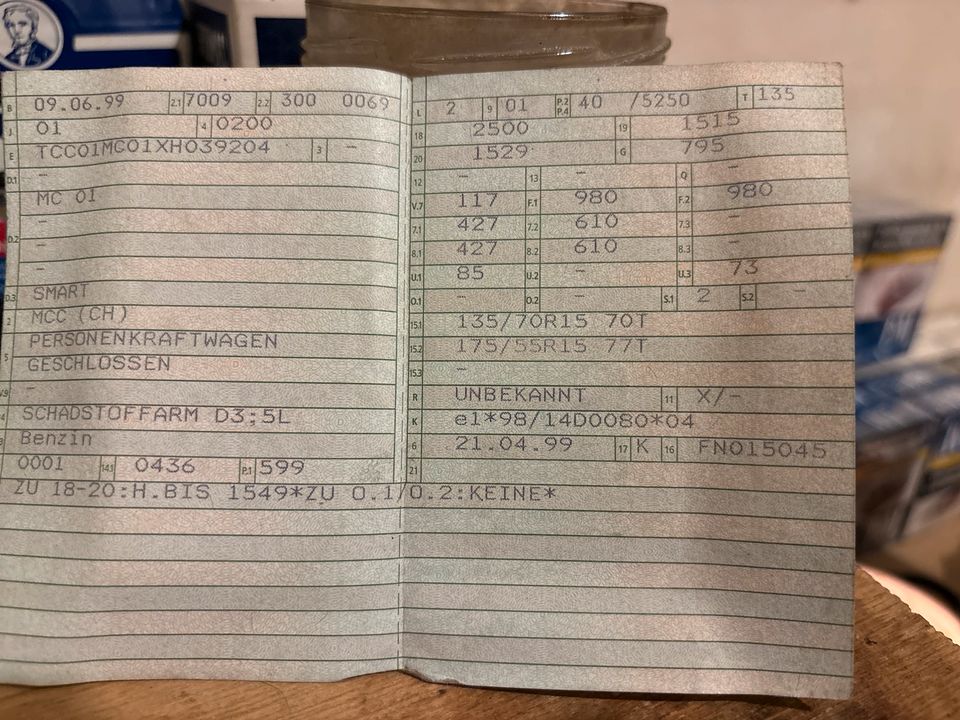 B 09.06.99 2.1 7009 2.2 300 0069
J 01 4 0200
E TCC01MC01XH039204 3 -
D.1 -
MC 01
D.2 -
-
-
D.3 SMART
2 MCC (CH)
5 PERSONENKRAFTWAGEN
GESCHLOSSEN
V.9 -
SCHADSTOFFARM D3;5L
Benzin
0001 14.1 0436 P.1 599
L 2 9 01 P.2 P.4 40 /5250 T 135
18 2500 19 1515
20 1529 G 795
12 - 13 - Q -
V.7 117 F.1 980 F.2 980
7.1 427 7.2 610 7.3 -
8.1 427 8.2 610 8.3 -
U.1 85 U.2 - U.3 73
O.1 - O.2 - S.1 2 S.2 -
15.1 135/70R15 70T
15.2 175/55R15 77T
15.3 -
R UNBEKANNT 11 X/-
K e1*98/14D0080*04
6 21.04.99 17 K 16 FN015045
21
ZU 18-20:H.BIS 1549*ZU O.1/O.2:KEINE*